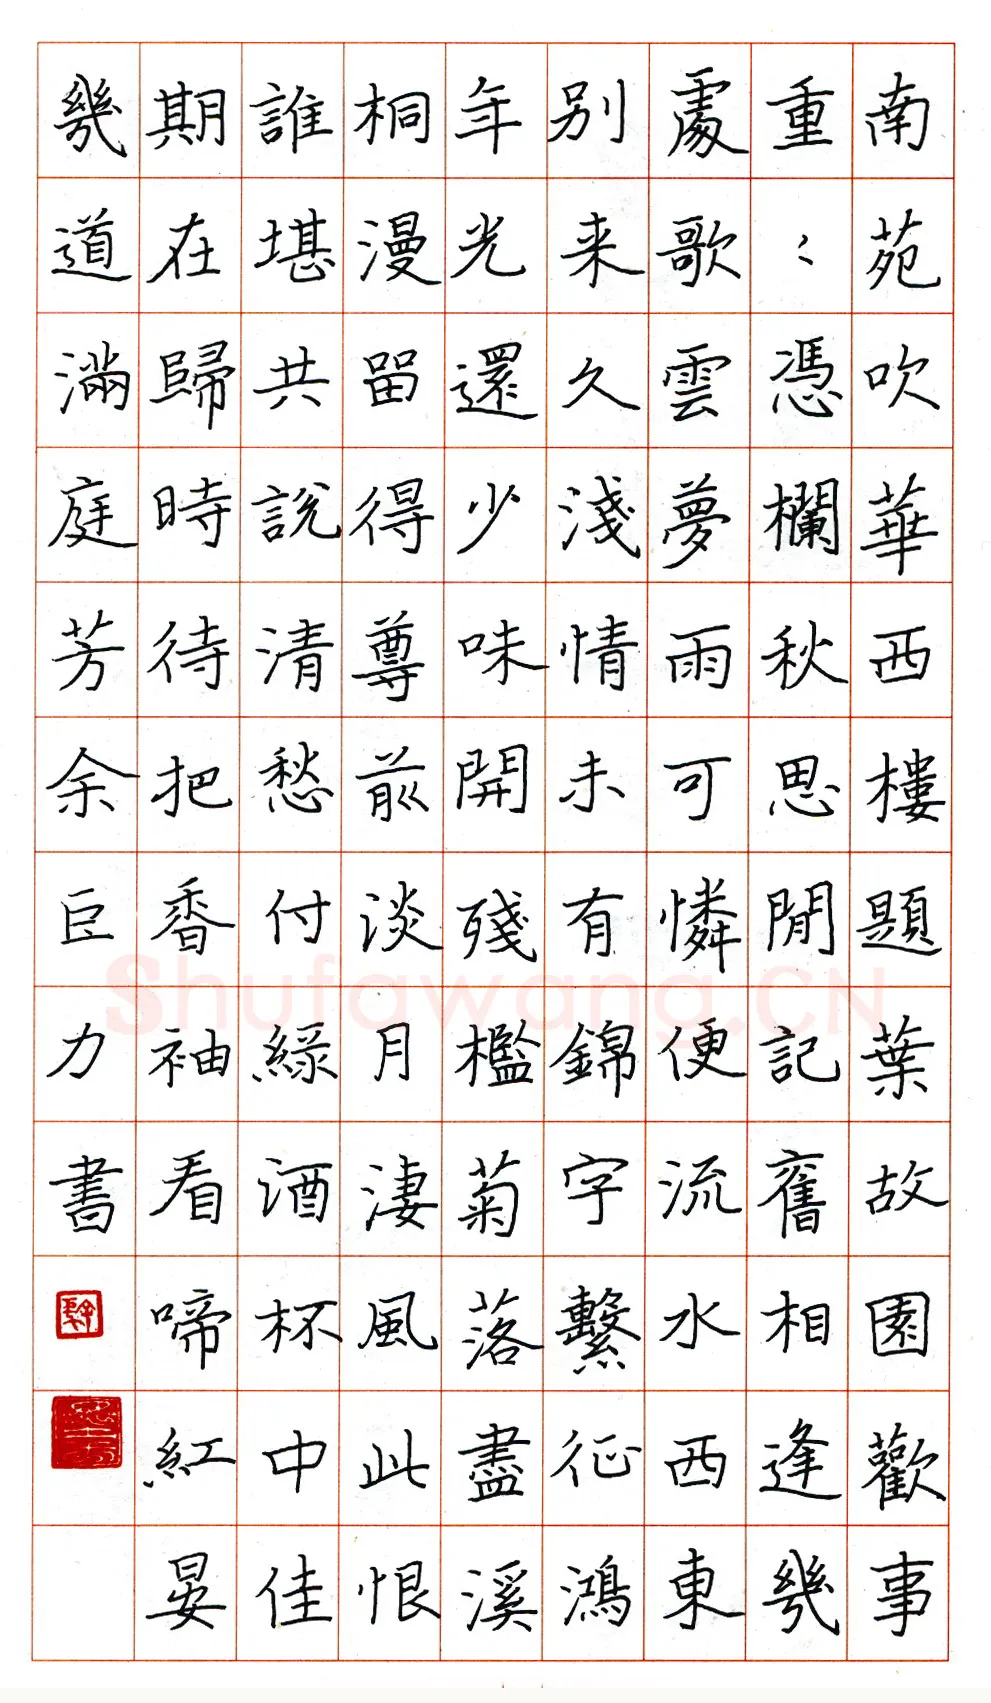 南苑吹華西樓題葉故園歡事
重〻憑欄秋思閒記舊相逢幾
處歌雲夢雨可憐便流水西東
别来久淺情未有錦字繫征鴻
年光還少味開殘檻菊落盡溪
桐漫留得尊前淡月淒風此恨
誰堪共説清愁付緑酒杯中佳
期在歸時待把香袖看啼紅晏
幾道滿庭芳余臣力書
Shufawang.CN